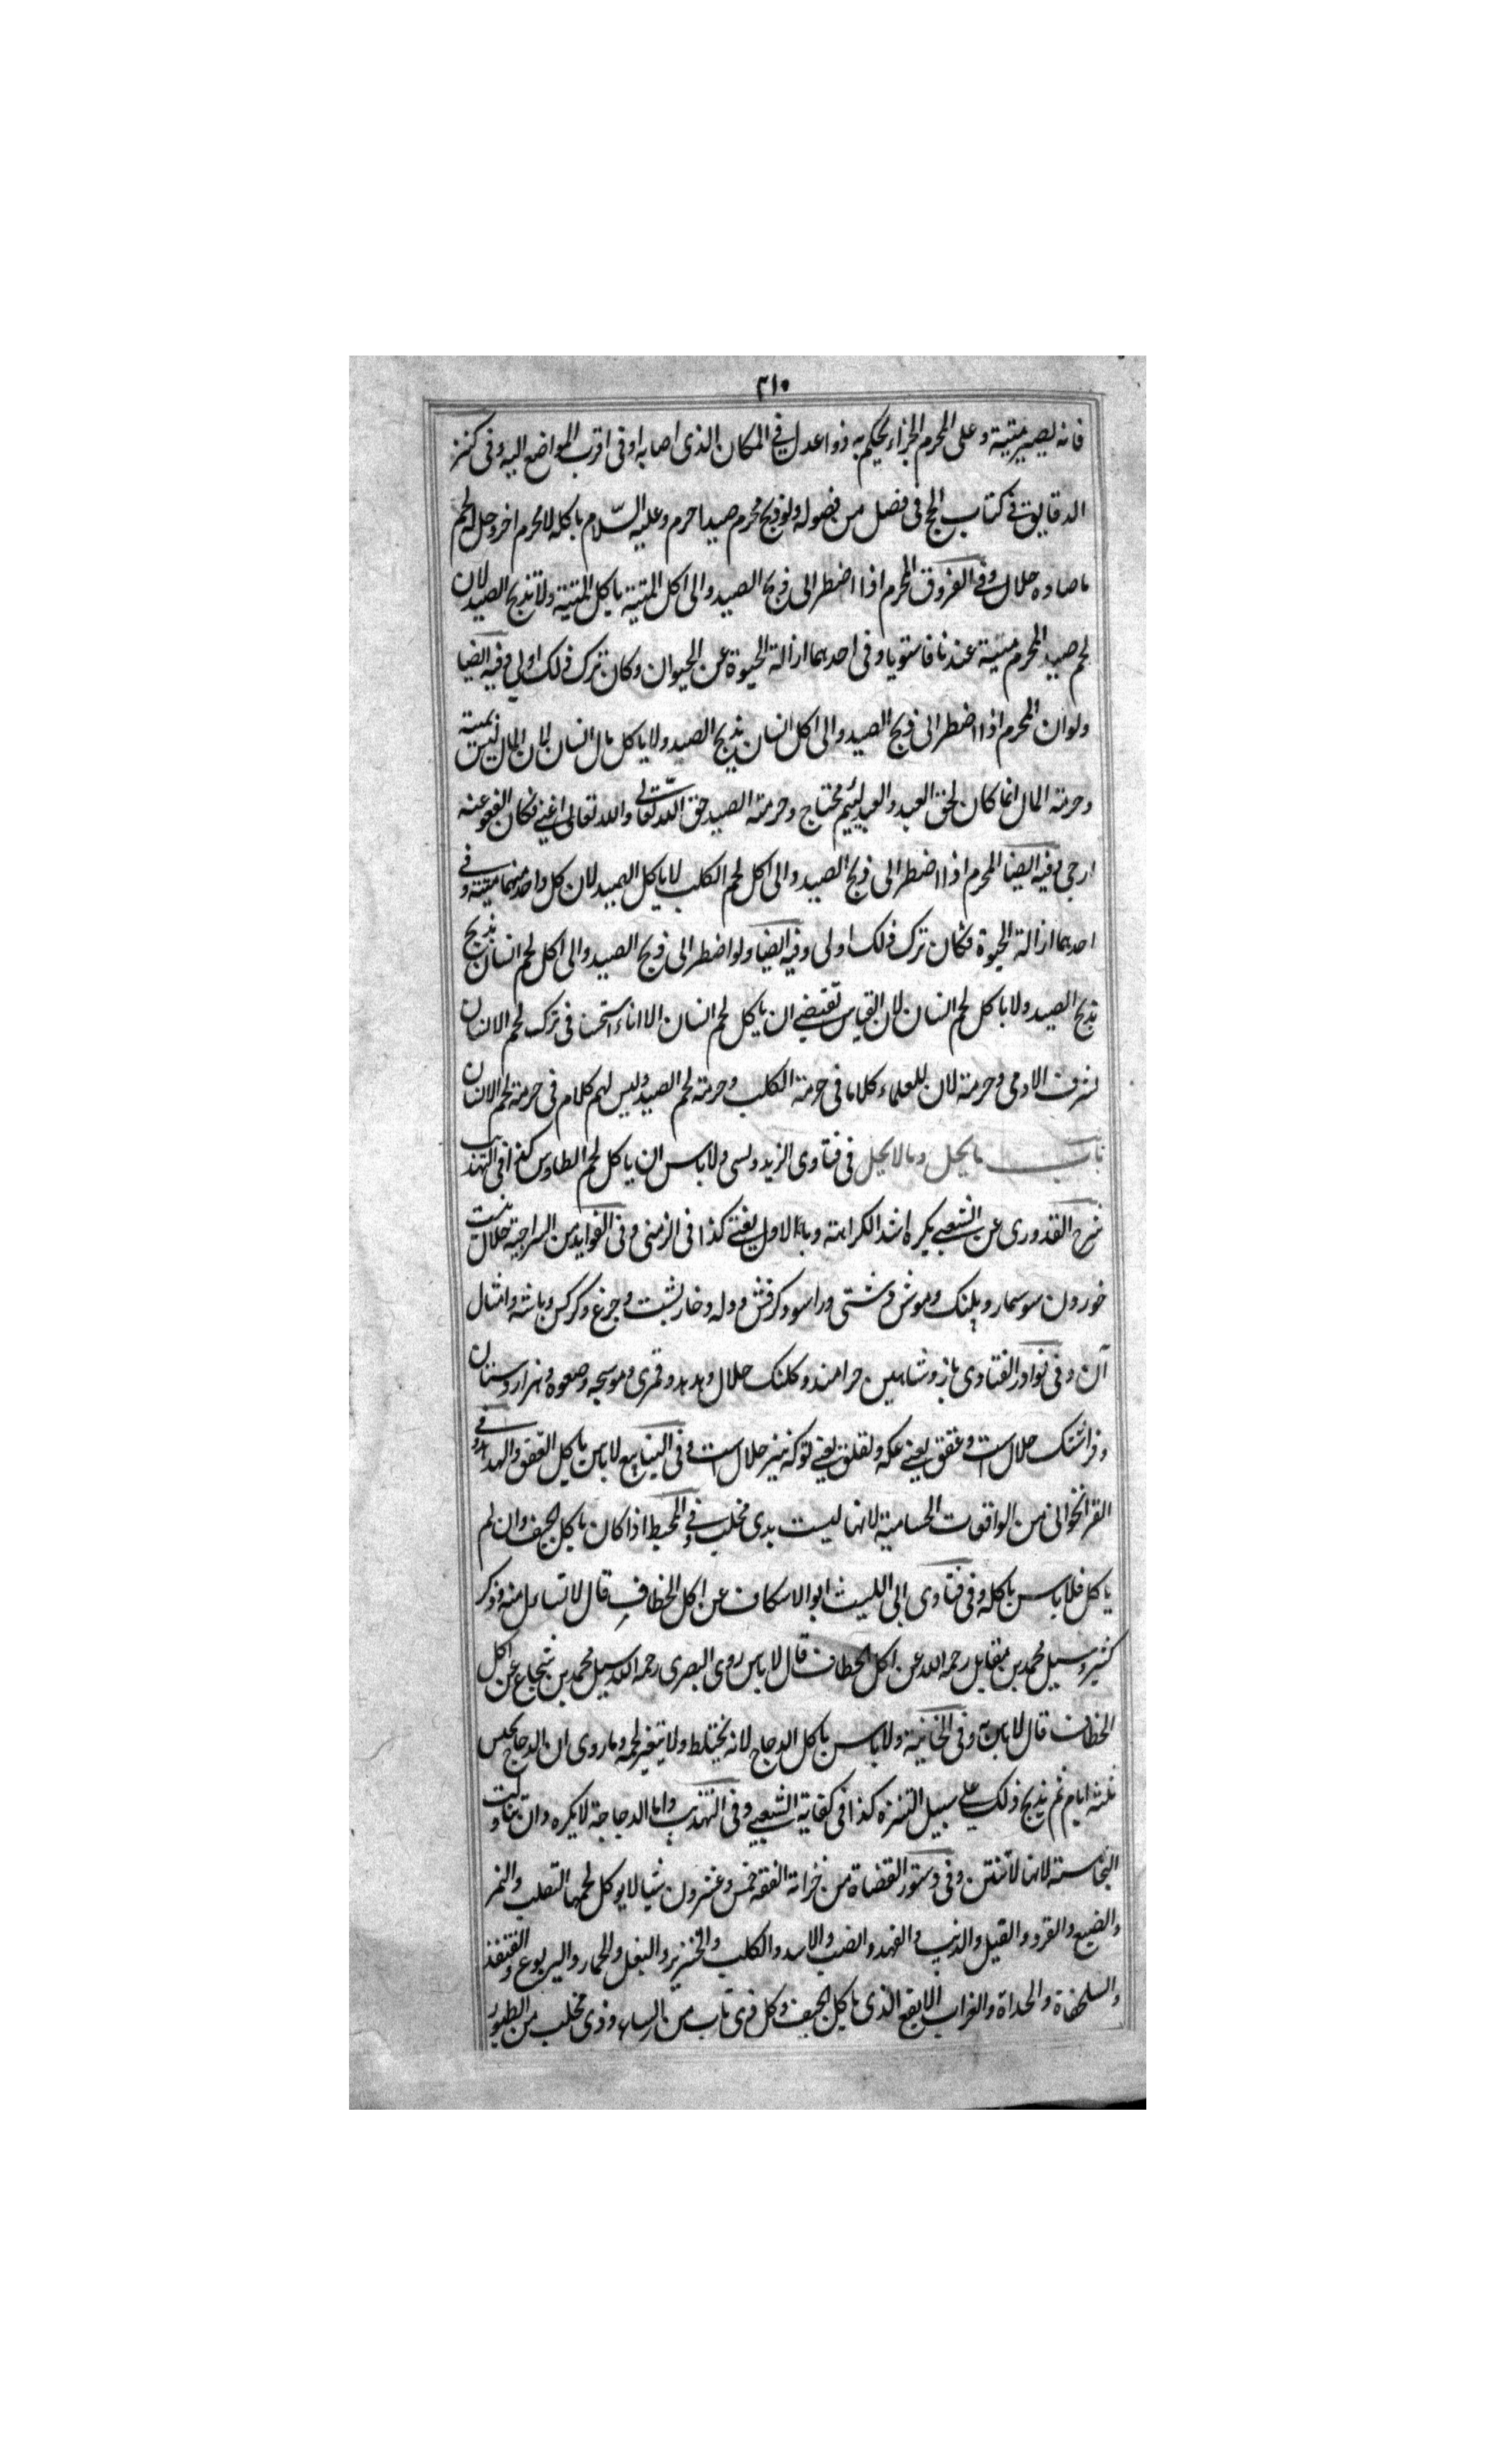 ٣١٠
فانه يصير ميتية وعلى المحرم الجزاء يحكم به ذوا عدل فى المكان الذى اصابه او فى اقرب المواضع اليه وفى كنز
الدقايق فى كتاب الحج فى فصل من فصوله ولو ذبح محرم صيدا حرم وعليه السّلام باكله لا محرم اخر وحل له لحم
ما صاده حلال وفى الفروق المحرم اذا اضطر الى ذبح الصيد والى اكل الميتية ياكل الميتية ولا يذبح الصيد لان
لحم صيد المحرم ميتية عندنا فاستويا وفى احديهما ازالة الحيوة عن الحيوان وكان ترك ذلك اولى وفيه ايضا
ولو ان المحرم اذا اضطر الى ذبح الصيد والى اكل انسان يذبح الصيد ولا ياكل مال انسان لان المال ليس بميتة
وحرمة المال انما كان لحق العبد والعبد لئيم محتاج وحرمة الصيد حق الله تعالى والله تعالى اغنى فكان العفو عنه
ارجى وفيه ايضا المحرم اذا اضطر الى ذبح الصيد والى اكل لحم الكلب لا ياكل الصيد لان كل واحد منهما ميتية وفى
احديهما ازالة الحيوة فكان ترك ذلك اولى وفيه ايضا ولو اضطر الى ذبح الصيد والى اكل لحم انسان يذبح
يذبح الصيد ولا ياكل لحم انسان لان القياس يقتضى ان ياكل لحم انسان الا انا استحسنا فى ترك لحم الانسان
لشرف الادمى وحرمة لان للعلماء كلاما فى حرمة الكلب وحرمة لحم الصيد وليس لهم كلام فى حرمة لحم الانسان
باب ما يحل وما لا يحل فى فتاوى الزيدولسى ولا باس ان ياكل لحم الطاوس كذا فى التهذيب
شرح القدورى عن الشعبى يكره اشد الكراهة وبالاول يفتى كذا فى الزمنى وفى الفوايد من السراجية حلال نيست
خوردن سوسمار و پلنک و موش دشتى و راسو و كرفش و دله و خارپشت و جرغ و كركس و باشه و امثال
آن وفى نوادر الفتاوى باز و شاهين حرامند و كلنک حلال و هدهد و قمرى و موسيجه و صعوه و هزاردستان
و فراشتک حلال است و عقعق يعنى عكه و لقلق يعنى لوكه نيز حلال است وفى الينابيع لا باس باكل العقعق والهدهد وفى
القرانخوانى من الواقعات الحسامية لانها ليست بذى مخلب وفى المحيط اذا كان ياكل الجيف وان لم
ياكل فلا باس باكله وفى فتاوى ابى الليث ابو الاسكاف عن اكل الخطاف قال لا تساءل منه وذكر
كثير وسيل محمد بن مقابل رحمه الله عن اكل الخطاف قال لا باس روى البصرى رحمه الله سيل محمد بن شجاع عن اكل
الخطاف قال لا باس به وفى الخانية ولا باس باكل الدجاج لانه يختلط ولا يتغير لحمه وما روى ان الدجاج يحبس
ثلثة ايام ثم يذبح ذلك على سبيل التنزه كذا فى كفاية الشعبى وفى التهذيب واما الدجاجة لا يكره وان تناولت
النجاسة لانها لا تنتن وفى دستور القضاة من خزانة الفقه خمس وعشرون شيا لا يوكل لحمها الثعلب والنمر
والضبع والقرد والفيل والذيب والفهد والضب والاسد والكلب والخنزير والبغل والحمار واليربوع والقنفذ
والسلحفاة والحداة والغراب الابقع الذى ياكل الجيف وكل ذى ناب من السباع وذى مخلب من الطيور